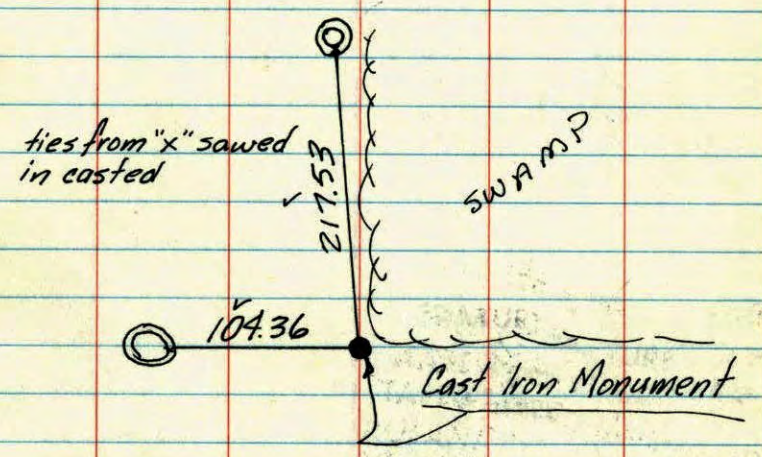 ties from "x" sawed
in casted
217.53
SWAMP
104.36
Cast Iron Monument